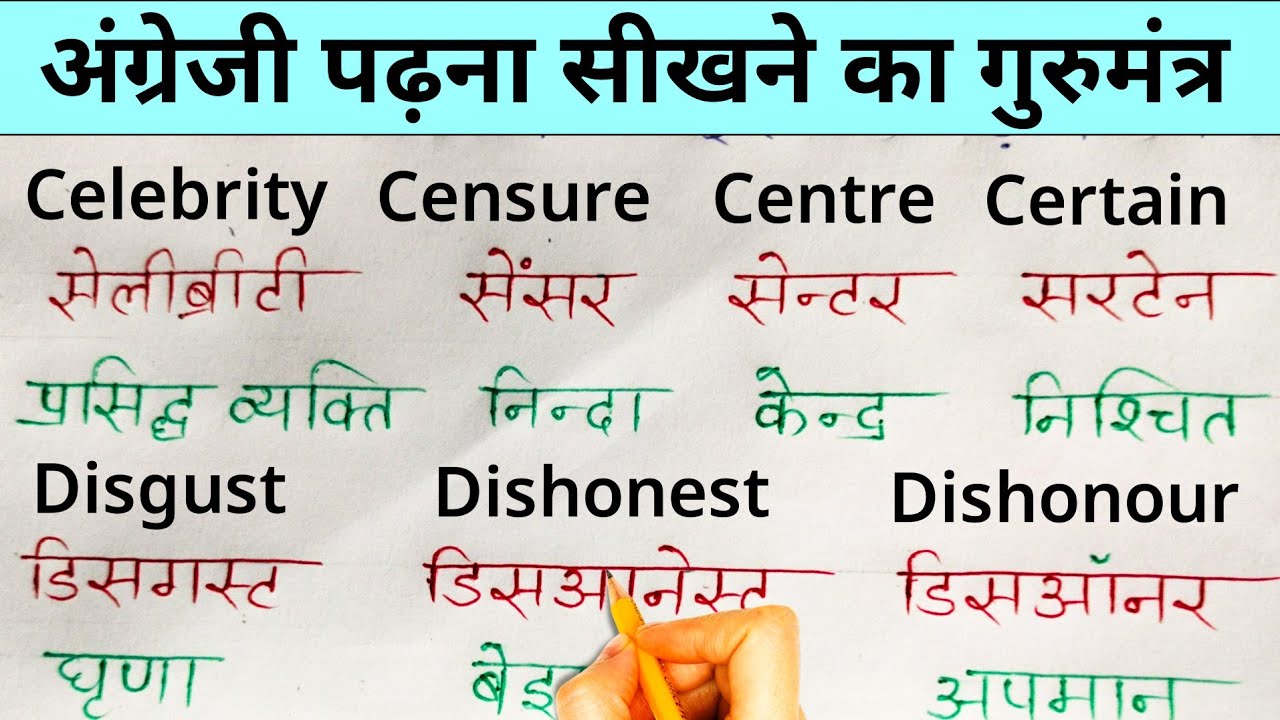 अंग्रेजी पढ़ना सीखने का गुरुमंत्र
Celebrity Censure Centre Certain
सेलीब्रीटी सेंसर सेन्टर सरटेन
प्रसिद्ध व्यक्ति निन्दा केन्द्र निश्चित
Disgust Dishonest Dishonour
डिसगस्ट डिसआनेस्ट डिसऑनर
घृणा बेइ अपमान